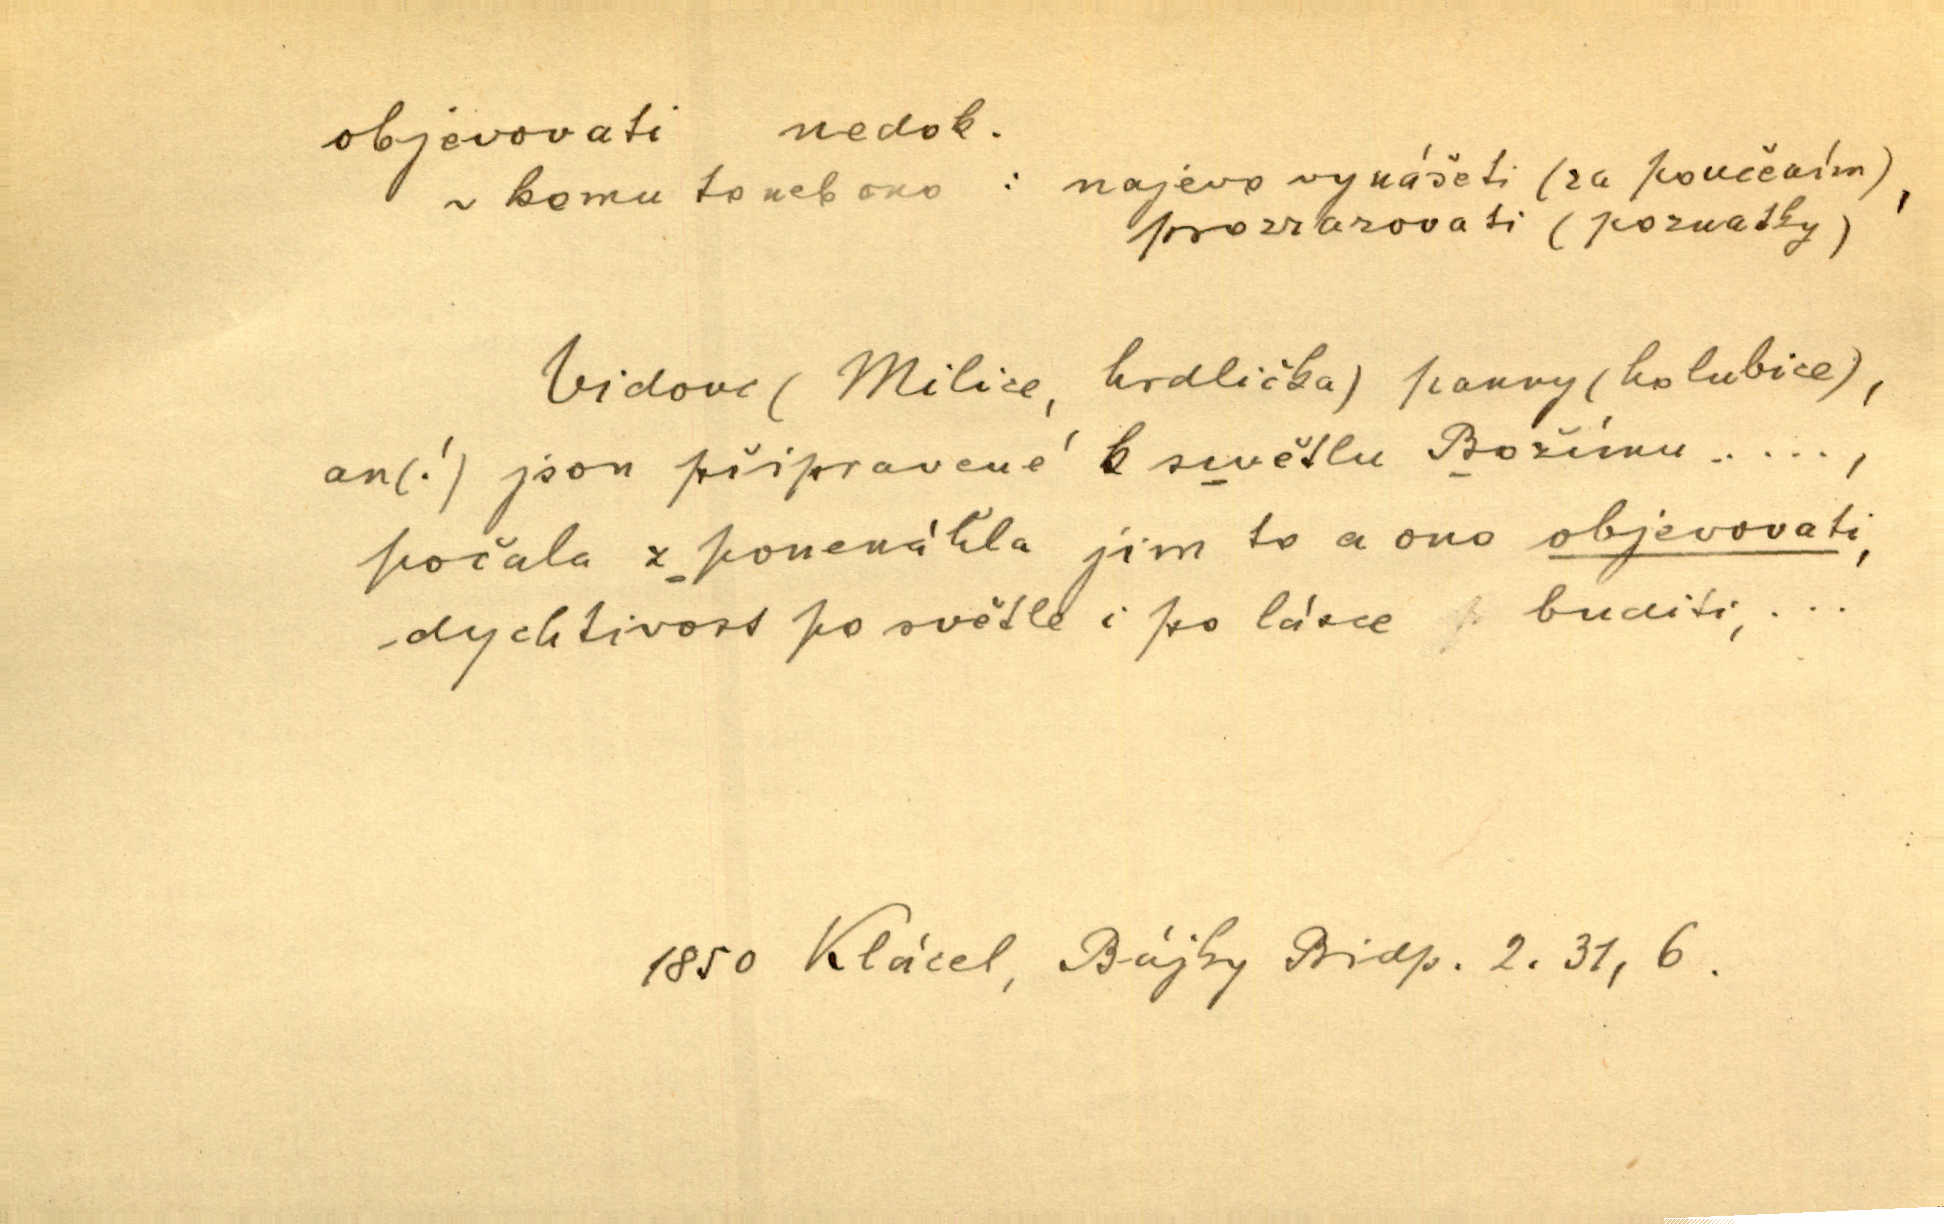 objevovati nedok.
~ komu to neb ono : najevo vynášeti (za poučením),
prozrazovati (poznatky)
Vidouc (Milice, hrdlička) panny (holubice),
an(!) jsou připravené k swětlu Božímu .....,
počala z ponenáhla jim to a ono objevovati,
dychtivost po světle i po lásce buditi, ...
1850 Klácel, Bájky Bidp. 2. 31, 6.